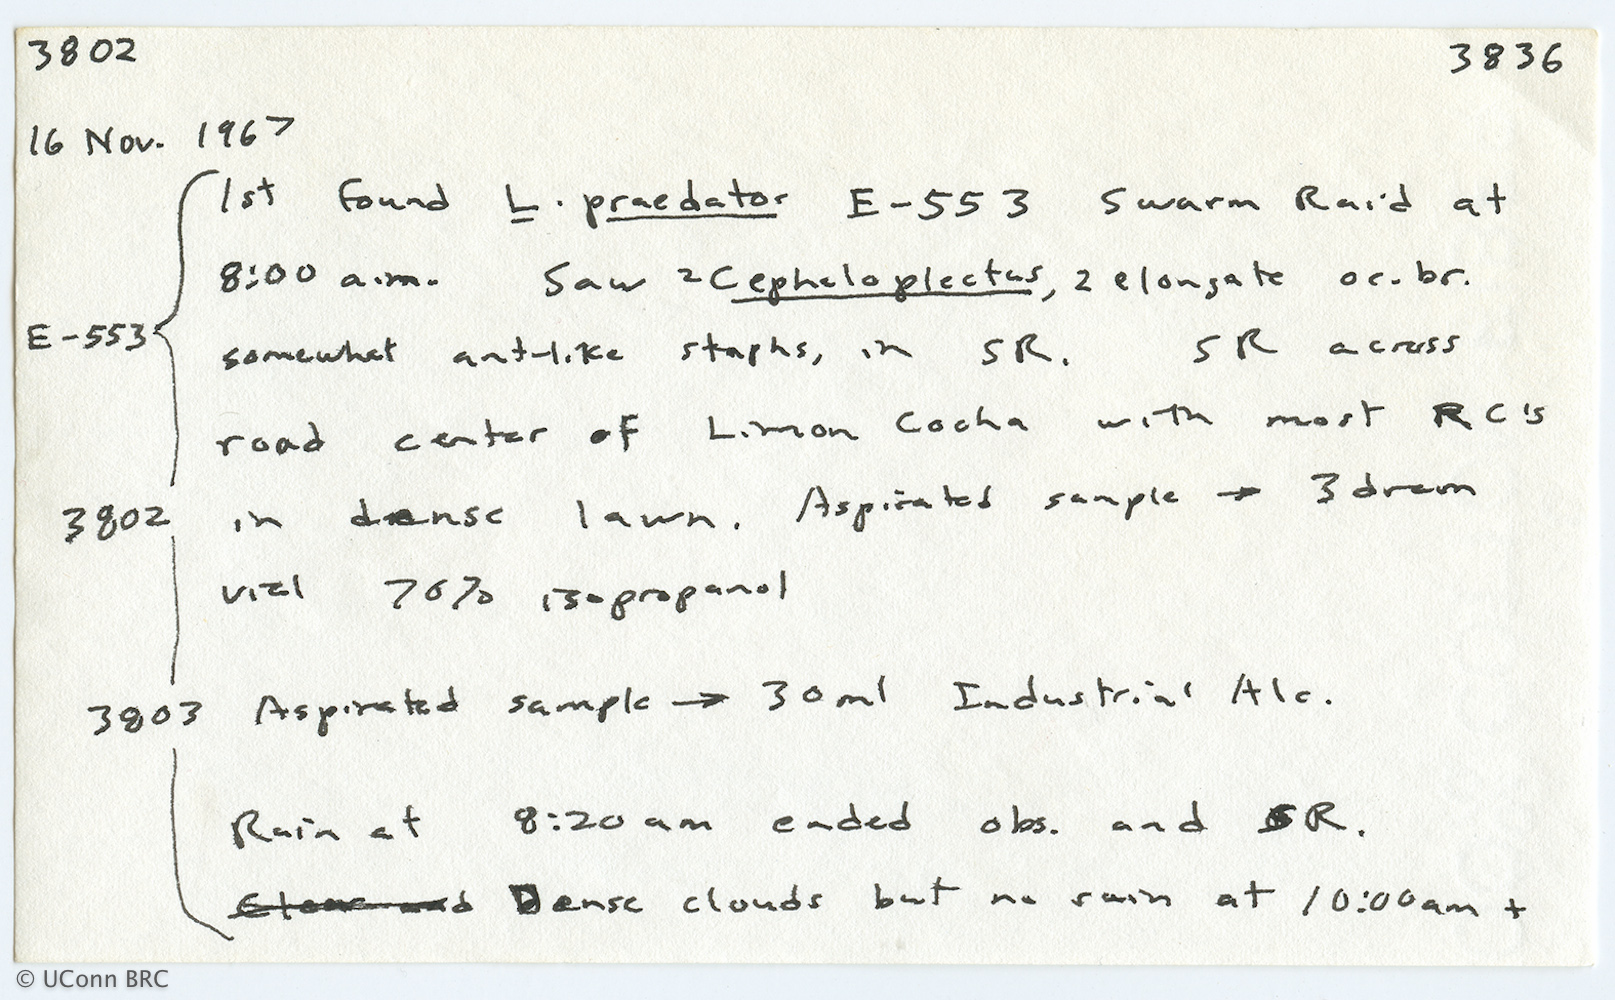 3802 3836
16 Nov. 1967
1st found L. praedator E-553 Swarm Raid at
8:00 a.m. Saw 2 Cepheloplectus, 2 elongate or. br.
E-553 somewhat ant-like staphs, in SR. SR across
road center of Limon Cocha with most RC's
3802 in dense lawn. Aspirated sample → 3 dram
vial 70% isopropanol
3803 Aspirated sample → 30 ml Industrial Alc.
Rain at 8:20 am ended obs. and SR.
Clear and Dense clouds but no rain at 10:00 am +
© UConn BRC